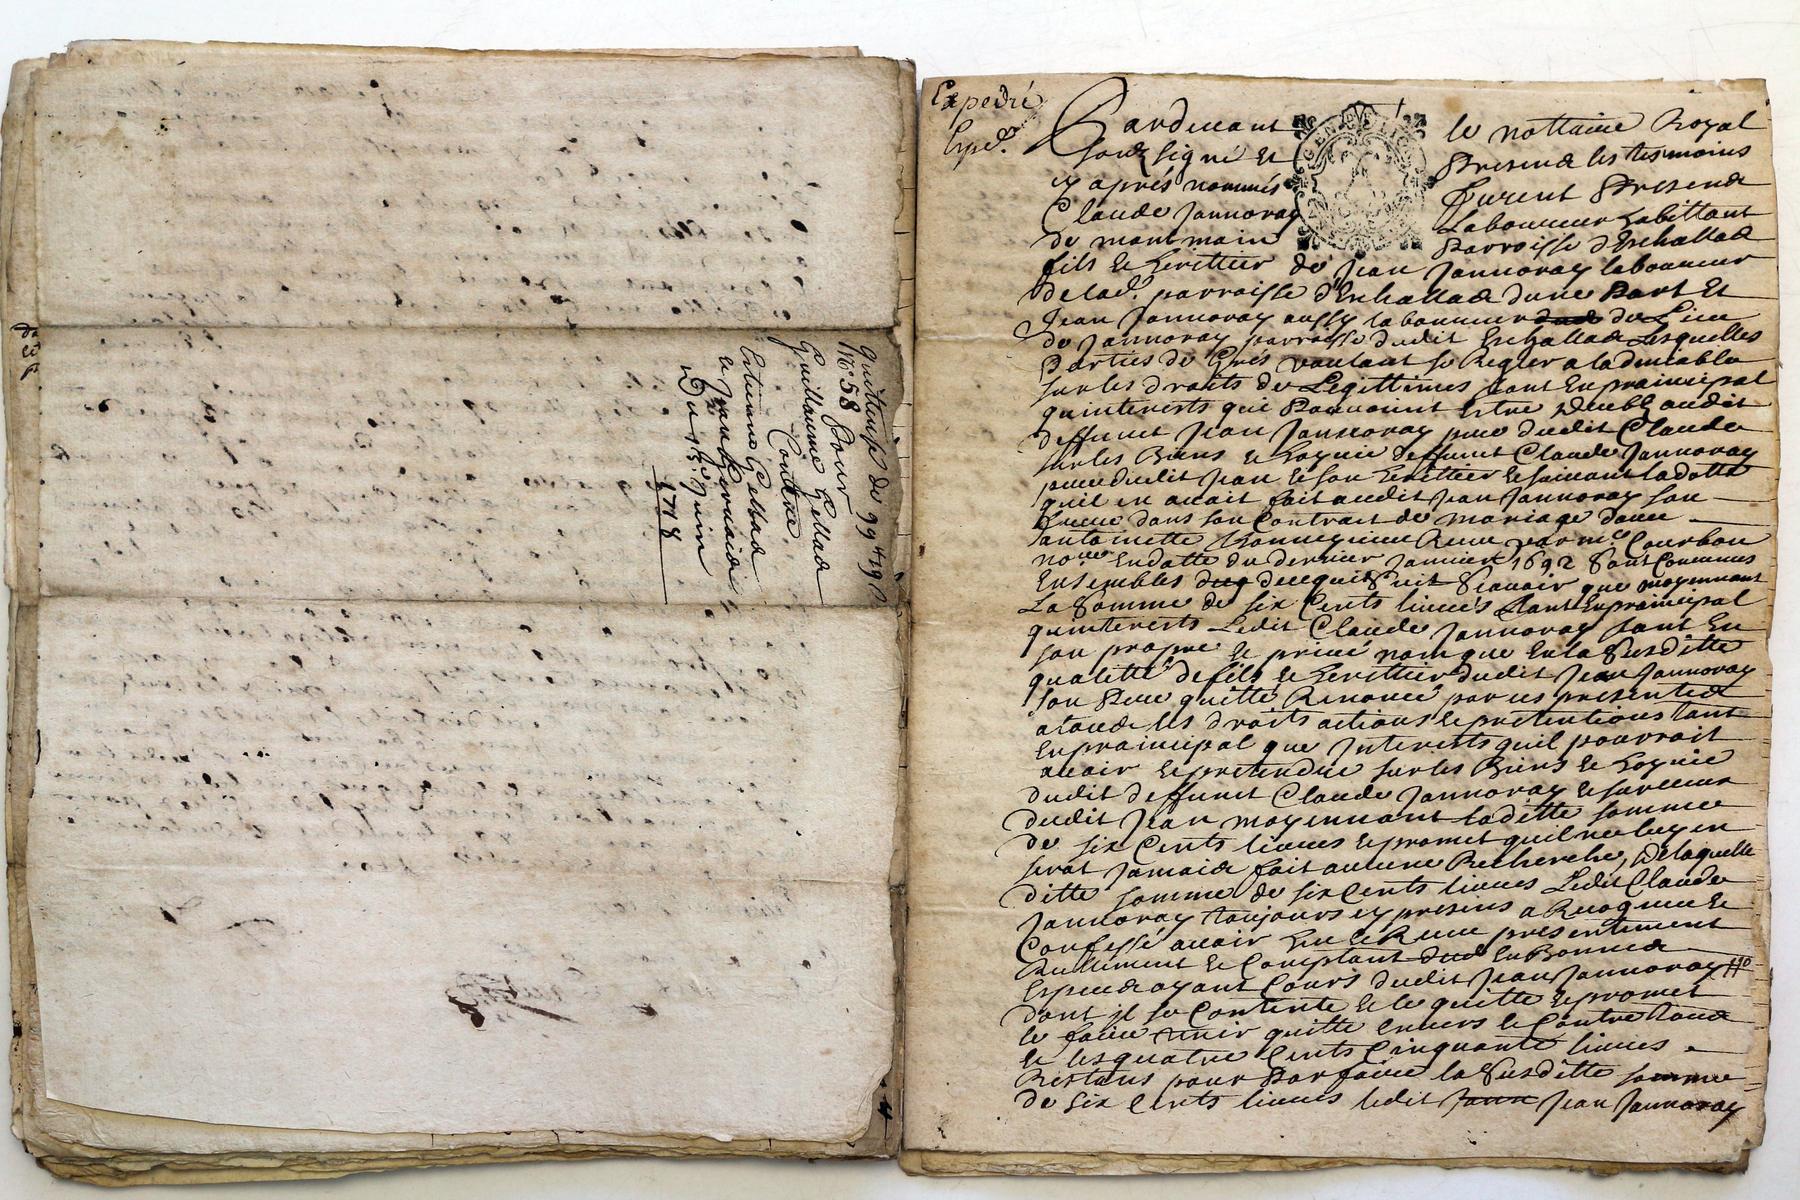 quittance de 99 lt 19 s
N° 58 Pour
Guillaume Gellad
Contre
Estienne Gellad
et Jean
Du 15e Juin
1718
Expedié
Exped.
Pardevant le nottaire Royal
souz signé et Present les tesmoins
cy aprés nommés furent Present
Claude Jannoray Laboureur habittant
de montmain Parroisse d'Eschallad
fils et herittier de Jean Jannoray laboureur
de lad. parroisse d'Eschallad d'une Part et
Jean Jannoray aussy laboureur du Lieu
de Jannoray parroisse dudit Eschallad Lesquelles
Parties de Grés voulant se Regler a la
sur les droits de Legittimes tant En prainsipal
quinterests qui Pouvoint Estre deubz audit
deffunct Jean Jannoray pere dudit Claude
sur les Biens et hoyrie deffunct Claude Jannoray
pere dudit Jean et son herittier et suivant la dotte
quil en avait fait audit Jean Jannoray son
frere dans son Contrait de mariage d'avec
antoinette Reçeu par me Courbon
nore En datte du dernier Janvier 1692 Sont Convenus
Ensembles de ce qui Suit Scavoir que moyennant
La Somme de six Cents livres tant En prainsipal
quinterests Ledit Claude Jannoray tant En
son propre et privé nom que En la Susditte
qualitté de fils et herittier dudit Jean Jannoray
son Pere quitte Renonce par ces presented
a toud les droits actions et prétentions tant
En prainsipal que Interests quil pourrait
avoir et pretendre sur les Biens et hoyrie
dudit deffunct Claude Jannoray et sur ceux
dudit Jean moyennant ladite somme
de six Cents livres et promet quil ne luy en
serat Jamaid fait aucune Recherche, De laquelle
ditte somme de six Cents livres Ledit Claude
Jannoray toujours cy presens a Recogneu et
Confessé avoir Eu et Reçeu presentement
Reellement et Comptant En Bonned
Especed ayant Cours dudit Jean Jannoray
dont il se Contente et le quitte et promet
le faire tenir quitte Envers et Contre toud
et les quatre Cents Cinquante livres
Restans pour Parfaire la Susditte somme
de six Cents livres ledit Jean Jannoray